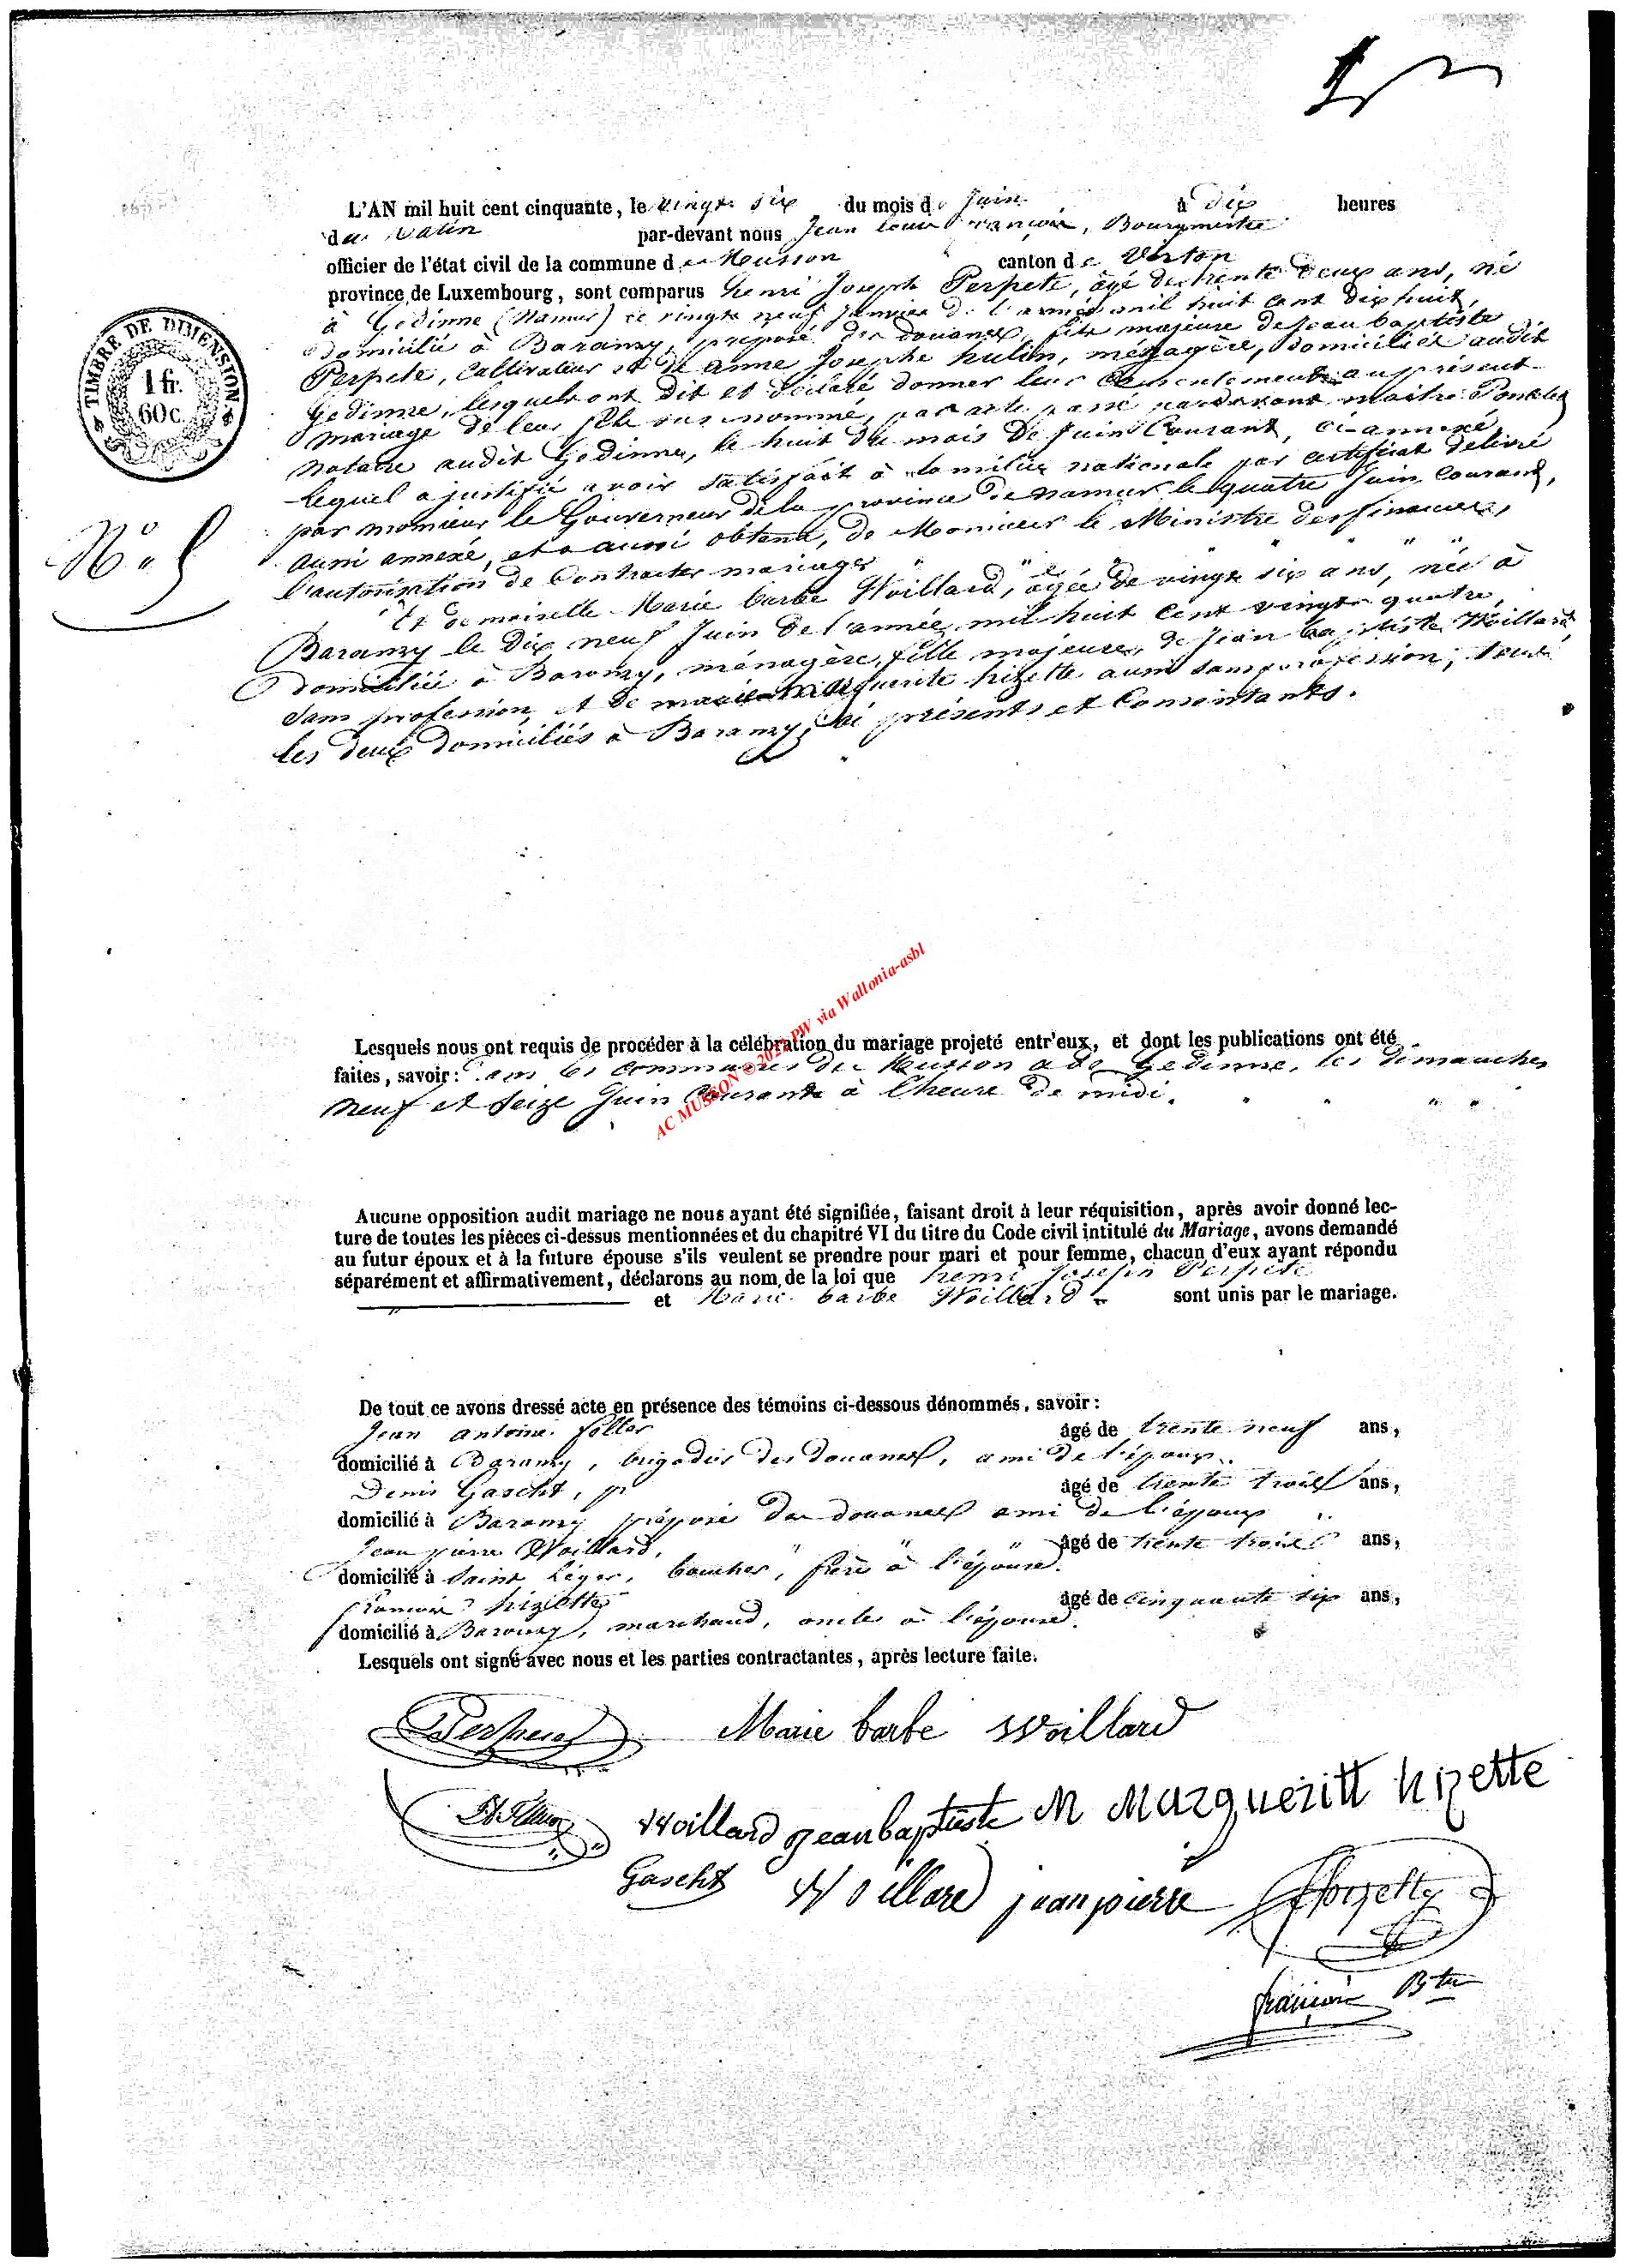 L'AN mil huit cent cinquante, le vingt six du mois de Juin à dix heures
du Matin par-devant nous Jean Louis François, Bourgmestre
officier de l'état civil de la commune de Musson canton de Virton
province de Luxembourg, sont comparus henri Joseph Perpete, âgé de trente deux ans, né
à Gedinne (Namur) le vingt neuf Janvier de l'année mil huit cent dix huit,
domicilié à Baranzy, préposé des douanes, fils majeure de Jean baptiste
Perpete, Cultivateur et de anne Josephe hulin, ménagère, domiciliés audit
TIMBRE DE DIMENSION
1 fr.
60 c.
Gedinne, lesquels ont dit et déclaré donner leur consentement au présent
mariage de leur fils sus nommé, par acte passé pardevant maître
notaire audit Gedinne, le huit du mois de Juin Courant, ci-annexé,
Lequel a justifié avoir satisfait à la milice nationale par certificat délivré
par monsieur le Gouverneur de la province de namur le quatre Juin Courant,
aussi annexé, et a aussi obtenu, de Monsieur le Ministre des finances,
N° 5
l'autorisation de Contracter mariage
Et demoiselle Marie barbe Woillard, âgée de vingt six ans, née à
Baranzy le Dix neuf Juin de l'année mil huit cent vingt quatre,
domiciliée à Baranzy, ménagère, fille majeure, de Jean baptiste Woillard
Sans profession, et de marie marguerite hizette aussi sans profession, tous
les deux domiciliés à Baranzy, ici présents et Consentants.
AC MUSSON © 202 PW via Wallonia-asbl
Lesquels nous ont requis de procéder à la célébration du mariage projeté entr'eux, et dont les publications ont été
faites, savoir : dans les communes de Musson et de Gedinne, les dimanches
neuf et Seize Juin Courant à l'heure de midi.
Aucune opposition audit mariage ne nous ayant été signifiée, faisant droit à leur réquisition, après avoir donné lec-
ture de toutes les pièces ci-dessus mentionnées et du chapitre VI du titre du Code civil intitulé du Mariage, avons demandé
au futur époux et à la future épouse s'ils veulent se prendre pour mari et pour femme, chacun d'eux ayant répondu
séparément et affirmativement, déclarons au nom de la loi que henri Joseph Perpete
et Marie barbe Woillard sont unis par le mariage.
De tout ce avons dressé acte en présence des témoins ci-dessous dénommés, savoir :
Jean antoine âgé de trente neuf ans,
domicilié à Baranzy, brigadier des douanes, ami de l'époux.
Denis Gascht, pr âgé de trente trois ans,
domicilié à Baranzy préposé des douanes ami de l'époux
Jean pierre Woillard, âgé de trente trois ans,
domicilié à Saint Léger, boucher, frère à l'épouse.
françois hizette âgé de cinquante six ans,
domicilié à Baranzy, marchand, oncle à l'épouse.
Lesquels ont signé avec nous et les parties contractantes, après lecture faite.
Perpete Marie barbe Woillard
Woillard Jean baptiste M Margueritt hizette
Gascht Woillard jean pierre Hizette
françois Btre